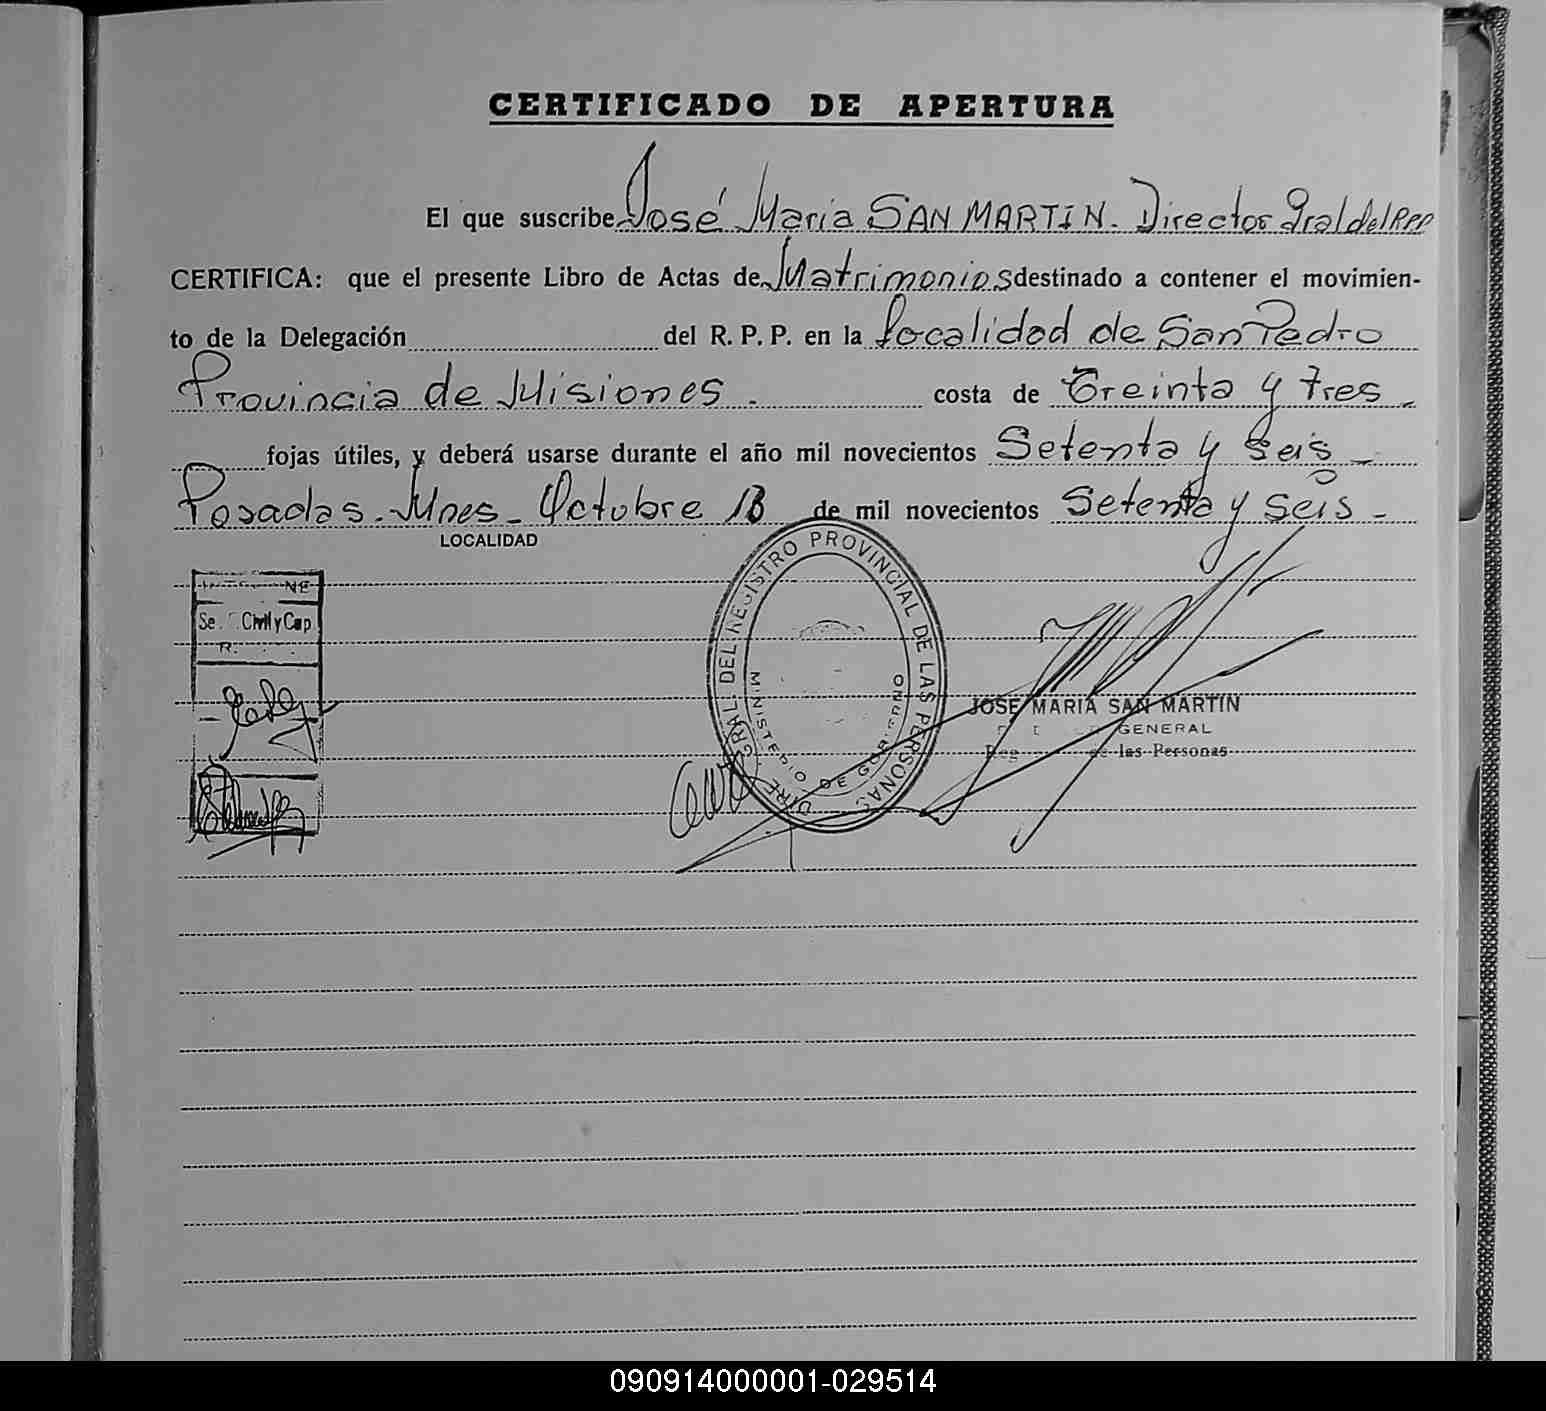 CERTIFICADO DE APERTURA
El que suscribe José Maria SAN MARTIN. Director Gral del RPP
CERTIFICA: que el presente Libro de Actas de Matrimonios destinado a contener el movimien-
to de la Delegación del R. P. P. en la localidad de San Pedro
Provincia de Misiones. costa de Treinta y tres
fojas útiles, y deberá usarse durante el año mil novecientos Setenta y seis
Posadas. Mnes - Octubre 13 de mil novecientos Setenta y seis -
LOCALIDAD
Civil y Cap
DIRE. GRAL. DEL REGISTRO PROVINCIAL DE LAS PERSONAS
MINISTERIO DE GOBIERNO
JOSE MARIA SAN MARTIN
GENERAL
de las Personas
090914000001-029514